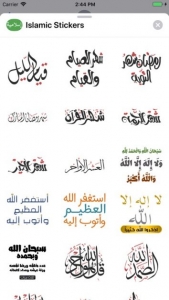 2:44 PM
Islamic Stickers
قيام الليل
شهر الصيام
والقيام
رمضان شهر
التوبة
شهر القرآن
شهر الرحمة
العشر الأواخر
سبحان الله والحمد لله
ولا إله إلا الله
والله أكبر
أستغفر الله
العظيم
وأتوب إليه
أستغفر الله
العظيم
وأتوب إليه
لا إله إلا
الله
سبحان الله
وبحمده
الله الصمد